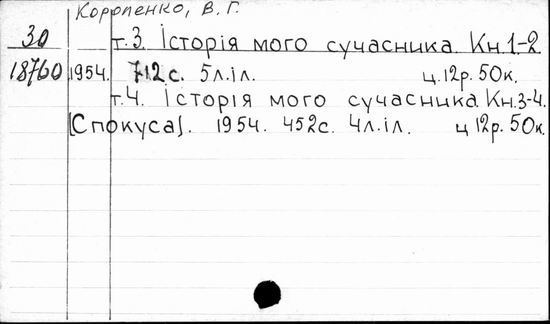 Короленко, В. Г.
30 т.3. Історія мого сучасника. Кн.1-2
18760 1954. 712с. 5л.іл. ц.12р.50к.
т.4. Історія мого сучасника. Кн.3-4.
[Спокуса]. 1954. 452с. 4л.іл. ц 12р.50к.